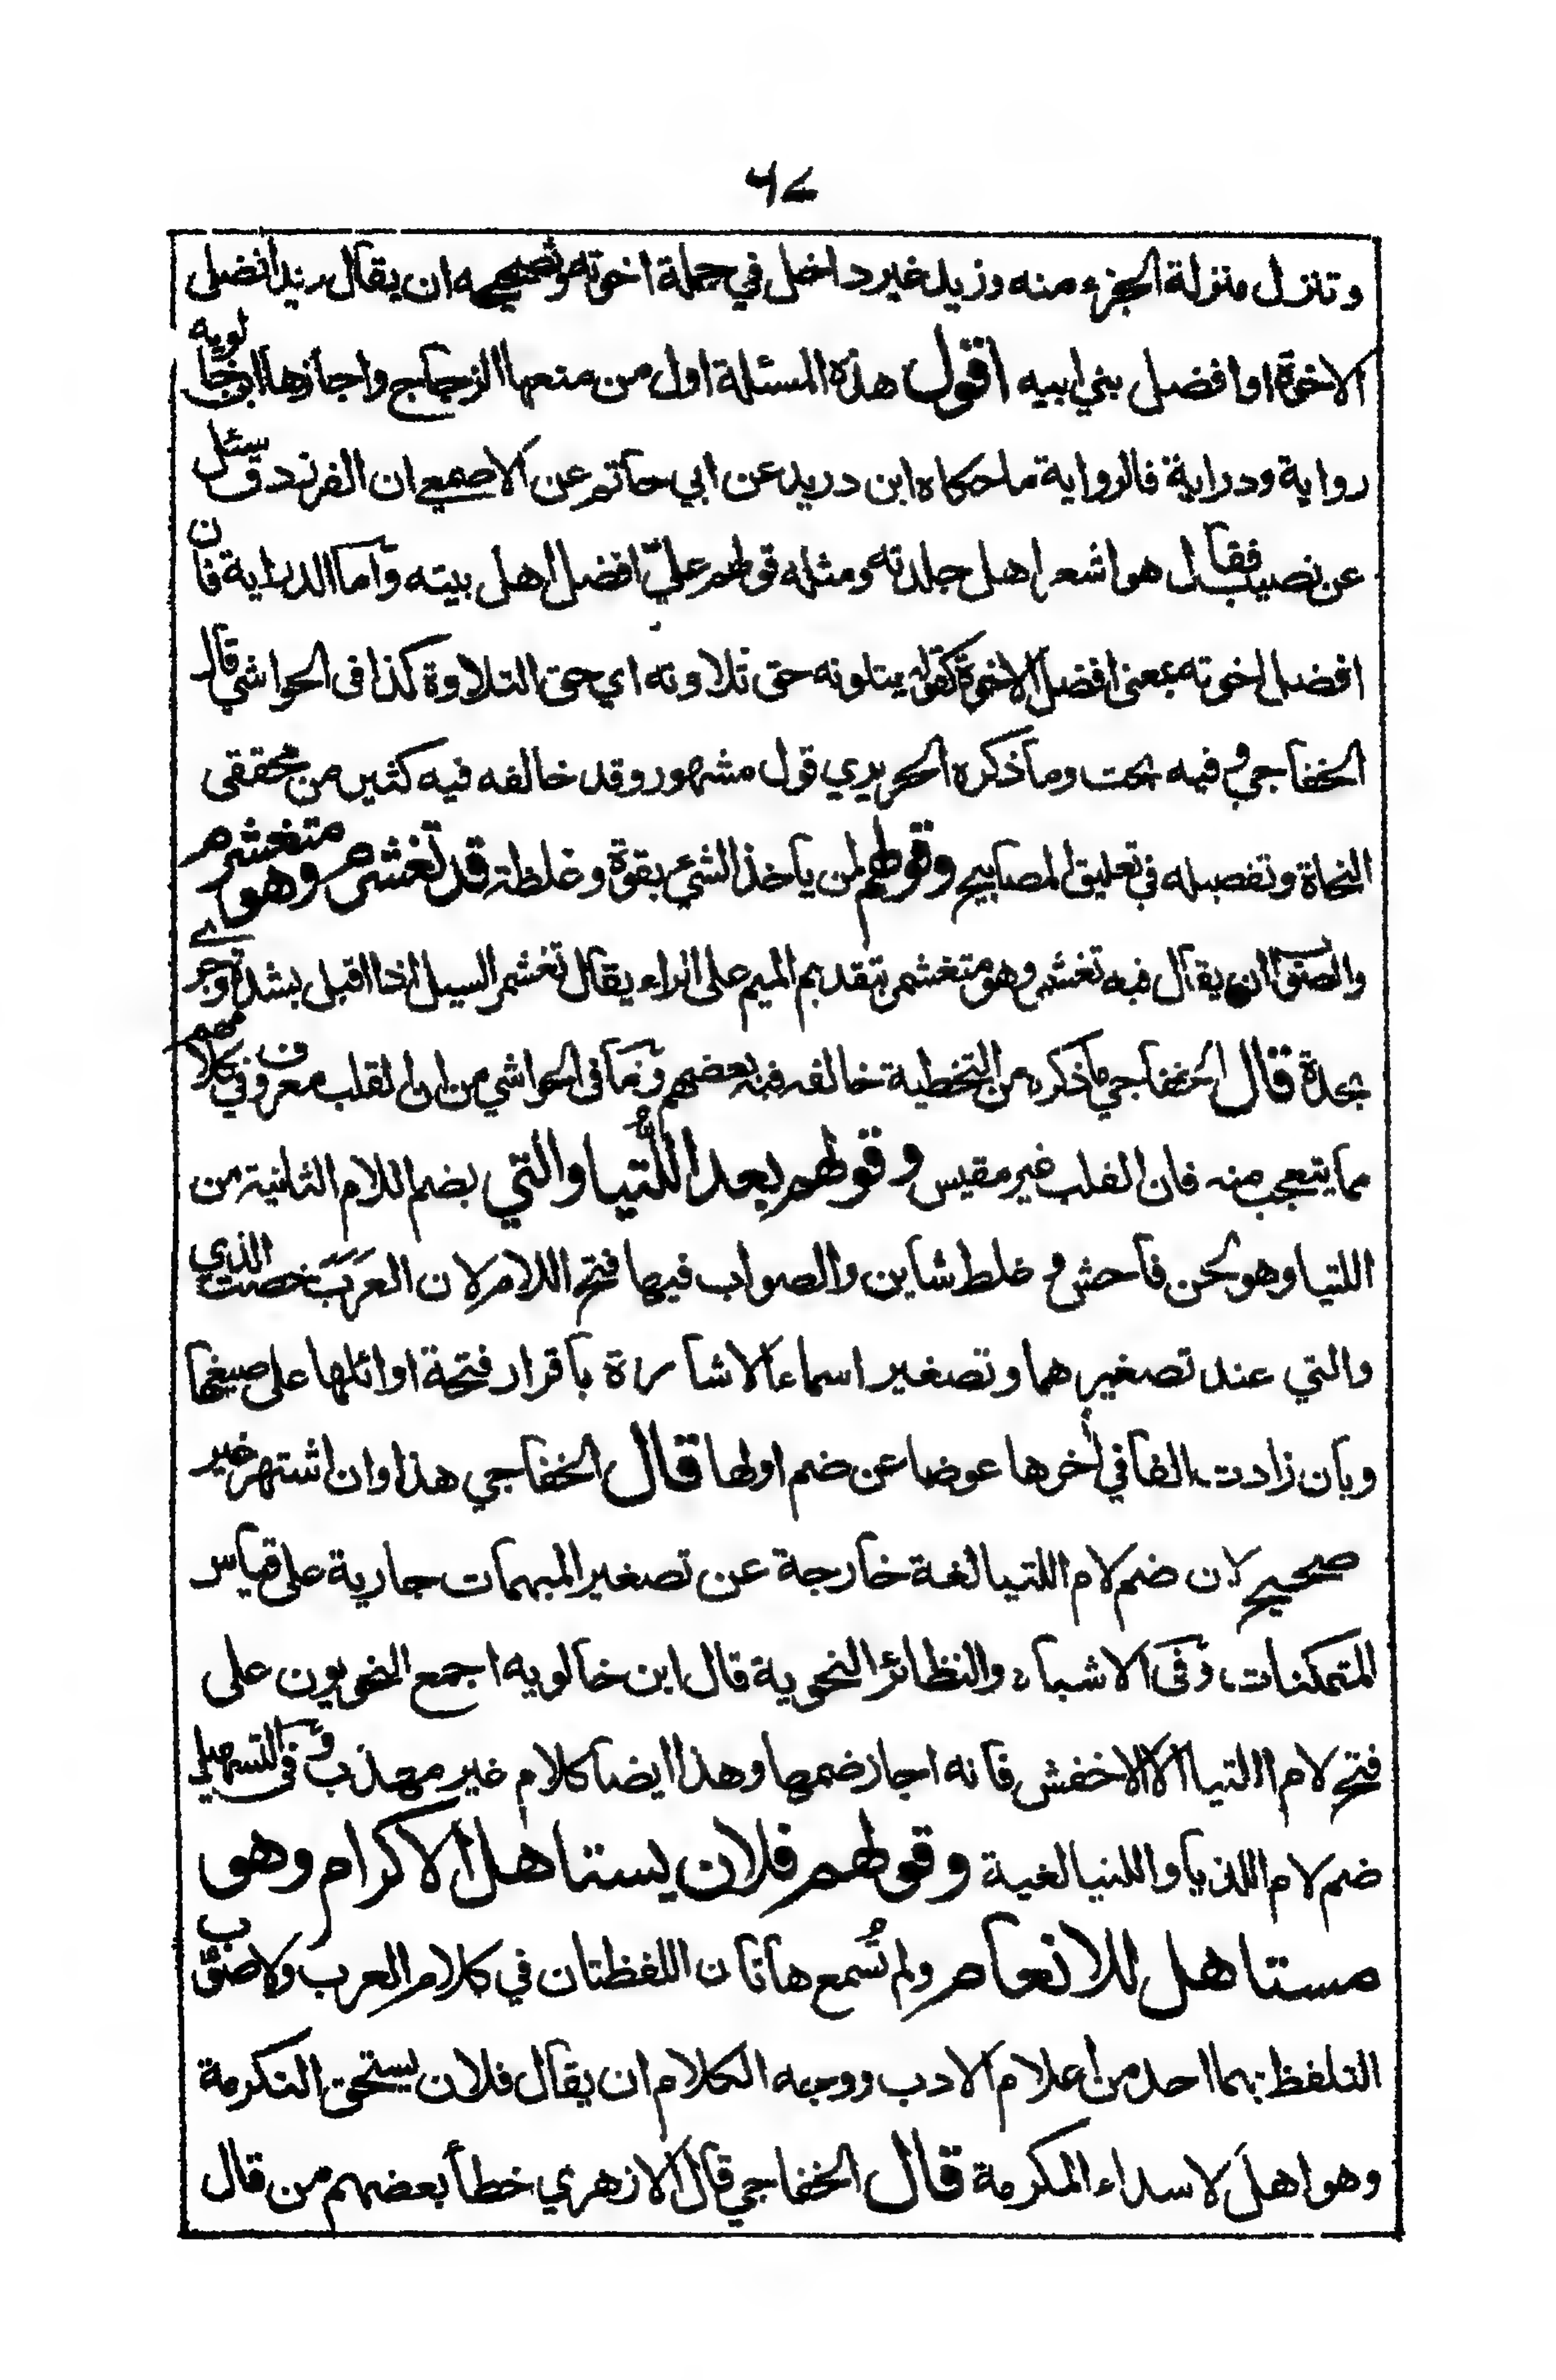 ٦٧
وتنزل منزلة الجزء منه وزيد غير داخل في جملة اخوته وتصحيحه ان يقال زيد افضل
الاخوة او افضل بني ابيه اقول هذه المسئلة اول من منعها الزجاج واجازها ابن خالويه
رواية ودراية فالرواية ما حكاه ابن دريد عن ابي حاتم عن الاصمعي ان الفرزدق سئل
عن نصيب فقال هو اشعر اهل جلدته ومثله قولهم عليّ افضل اهل بيته واما الدراية فان
افضل اخوته بمعنى افضل الاخوة كقوله يتلونه حق تلاوته اي حق التلاوة كذا في الحواشي قال
الخفاجي وفيه بحث وما ذكره الحريري قول مشهور وقد خالفه فيه كثير من محققى
النحاة وتفصيله في تعليق المصابيح وقولهم لمن ياخذ الشيء بقوة وغلظة قد تغشرم وهو متغشرم
والصواب ان يقال فيه تغشمر وهو متغشمر بتقديم الميم على الراء يقال تغشمر السيل اذا اقبل بشدة وجرى
بحدة قال الخفاجي ما ذكره من التخطية خالفه فيه بعضهم وما في الحواشي من ان القلب معروف في كلامهم
مما يتعجب منه فان القلب غير مقيس وقولهم بعد اللُّتيا والتي بضم اللام الثانية من
اللتيا وهو لحن فاحش و غلط شاين والصواب فيها فتح اللام لان العرب خصت الذي
والتي عند تصغيرهما وتصغير اسماء الاشارة باقرار فتحة اوائلها على صيغها
وبان زادت الفا في أخرها عوضا عن ضم اولها قال الخفاجي هذا وان اشتهر غير
صحيح لان ضم لام اللتيا لغة خارجة عن تصغير المبهمات جارية على قياس
المتمكنات وفى الاشباه والنظائر النحوية قال ابن خالويه اجمع النحويون على
فتح لام اللتيا الا الاخفش فانه اجاز ضمها وهذا ايضا كلام غير مهذب وفى التسهيل
ضم لام اللذيا واللتيا لغية وقولهم فلان يستاهل الاكرام وهو
مستاهل للانعام ولم تُسمع هاتان اللفظتان في كلام العرب ولا صوّب
التلفظ بهما احد من اعلام الادب ووجه الكلام ان يقال فلان يستحق التكرمة
وهو اهل لاسداء المكرمة قال الخفاجي قال الازهري خطأ بعضهم من قال